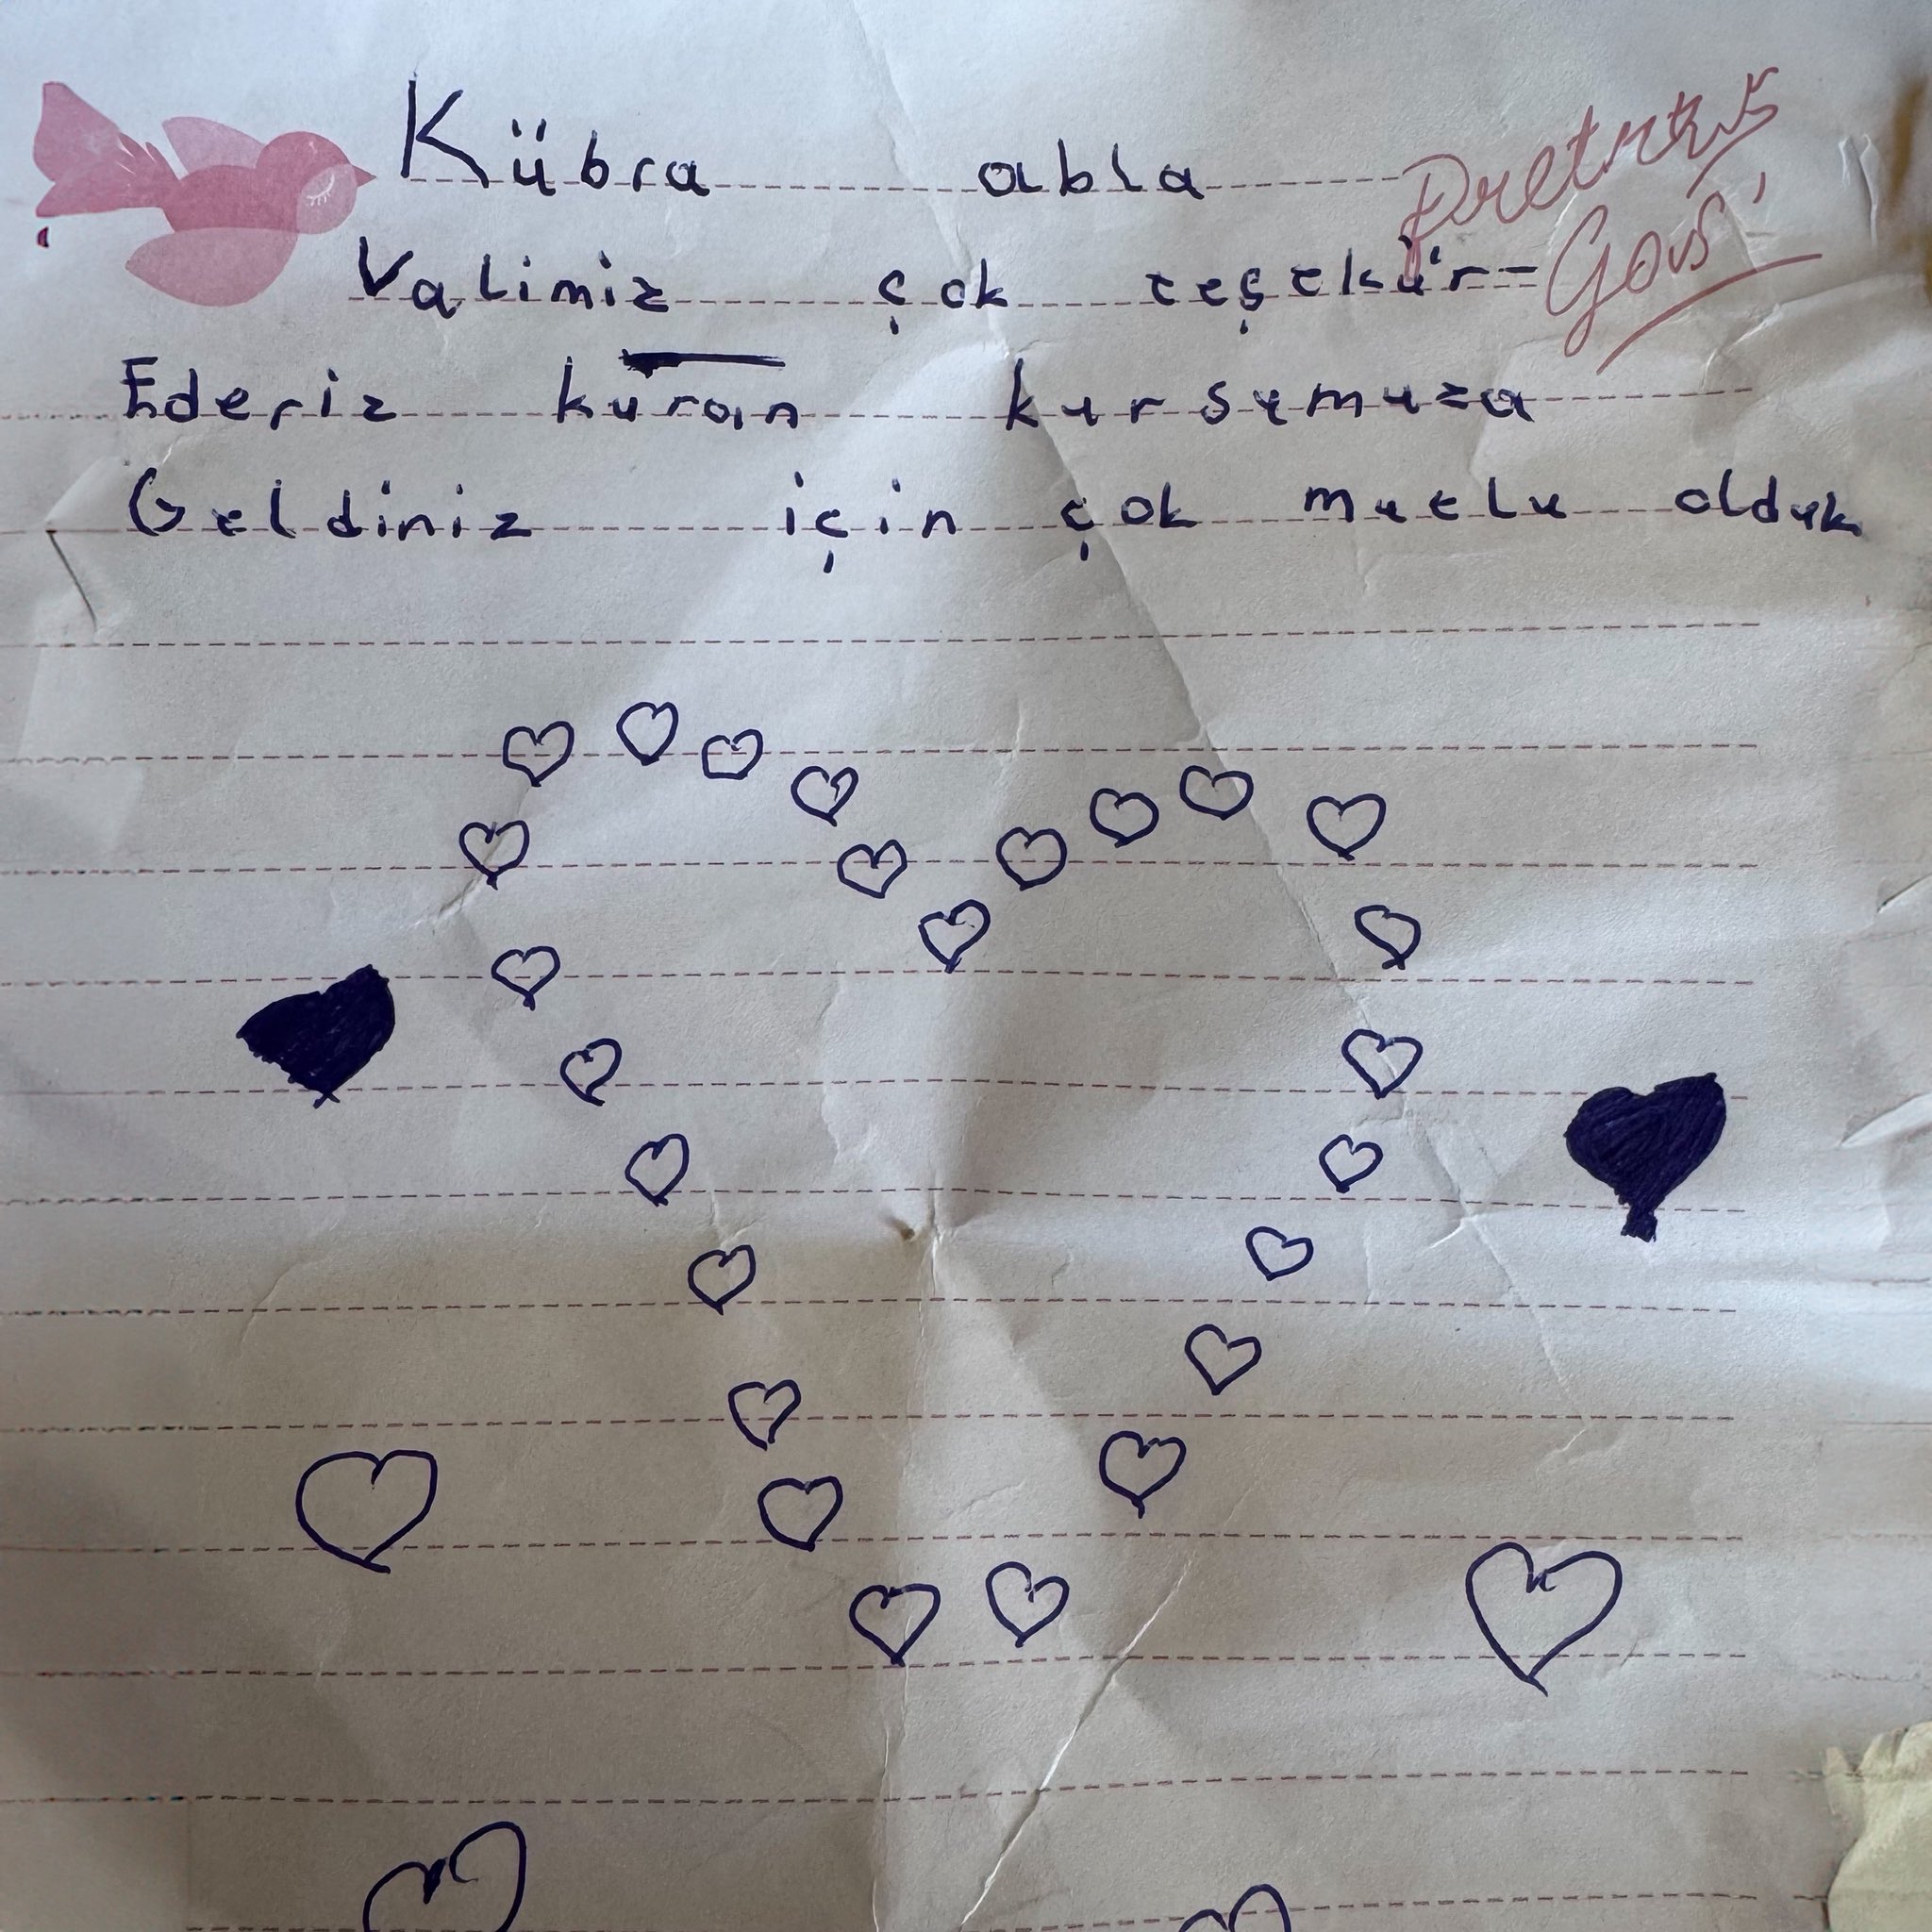 Kübra abla
Valimiz çok teşekür=
Ederiz kuran kursumuza
Geldiniz için çok mutlu olduk